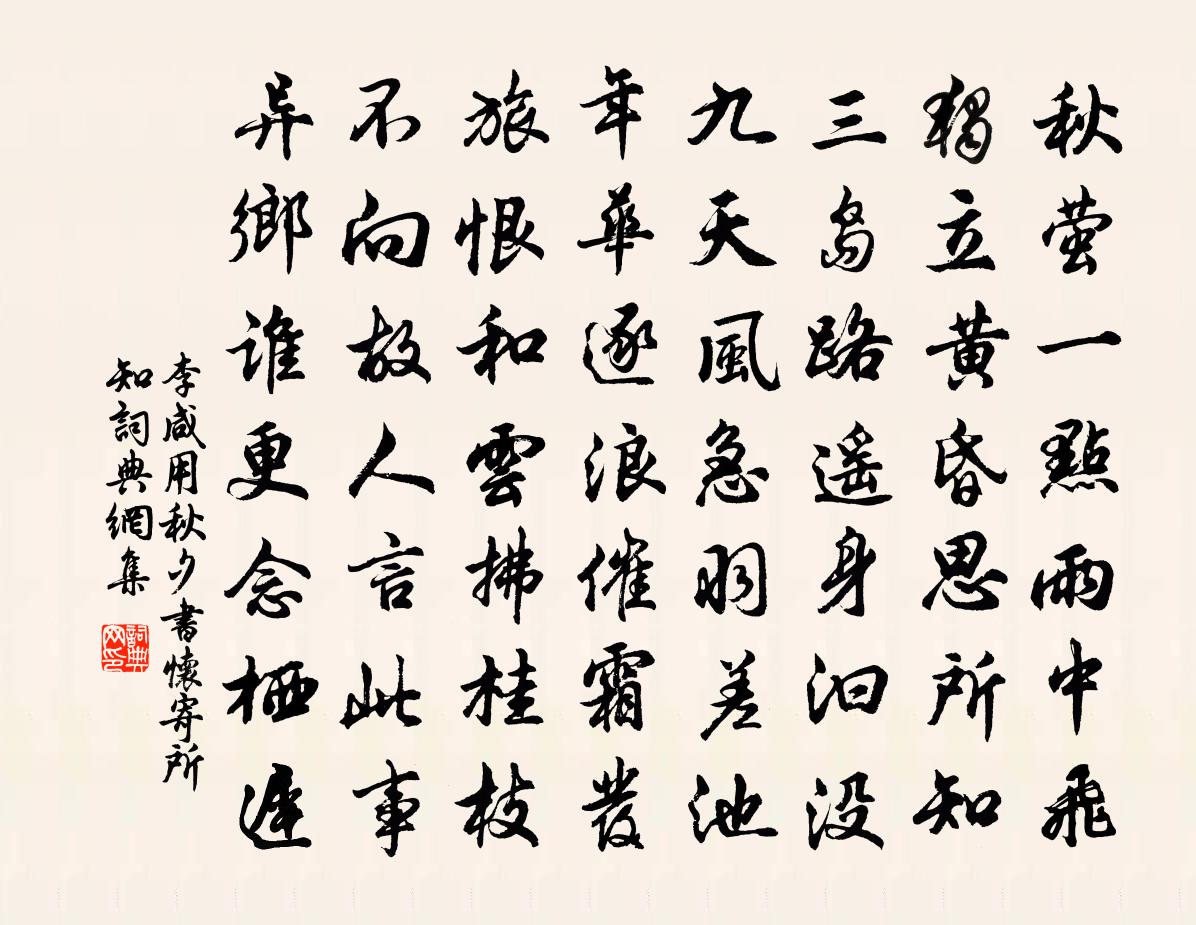 秋萤一點雨中飛
獨立黄昏思所知
三島路遥身汩没
九天風急羽差池
年華逐浪催霜發
旅恨和雲拂桂枝
不向故人言此事
异鄉誰更念栖遲
李咸用秋夕書懷寄所
知詞典網集
詞典网印